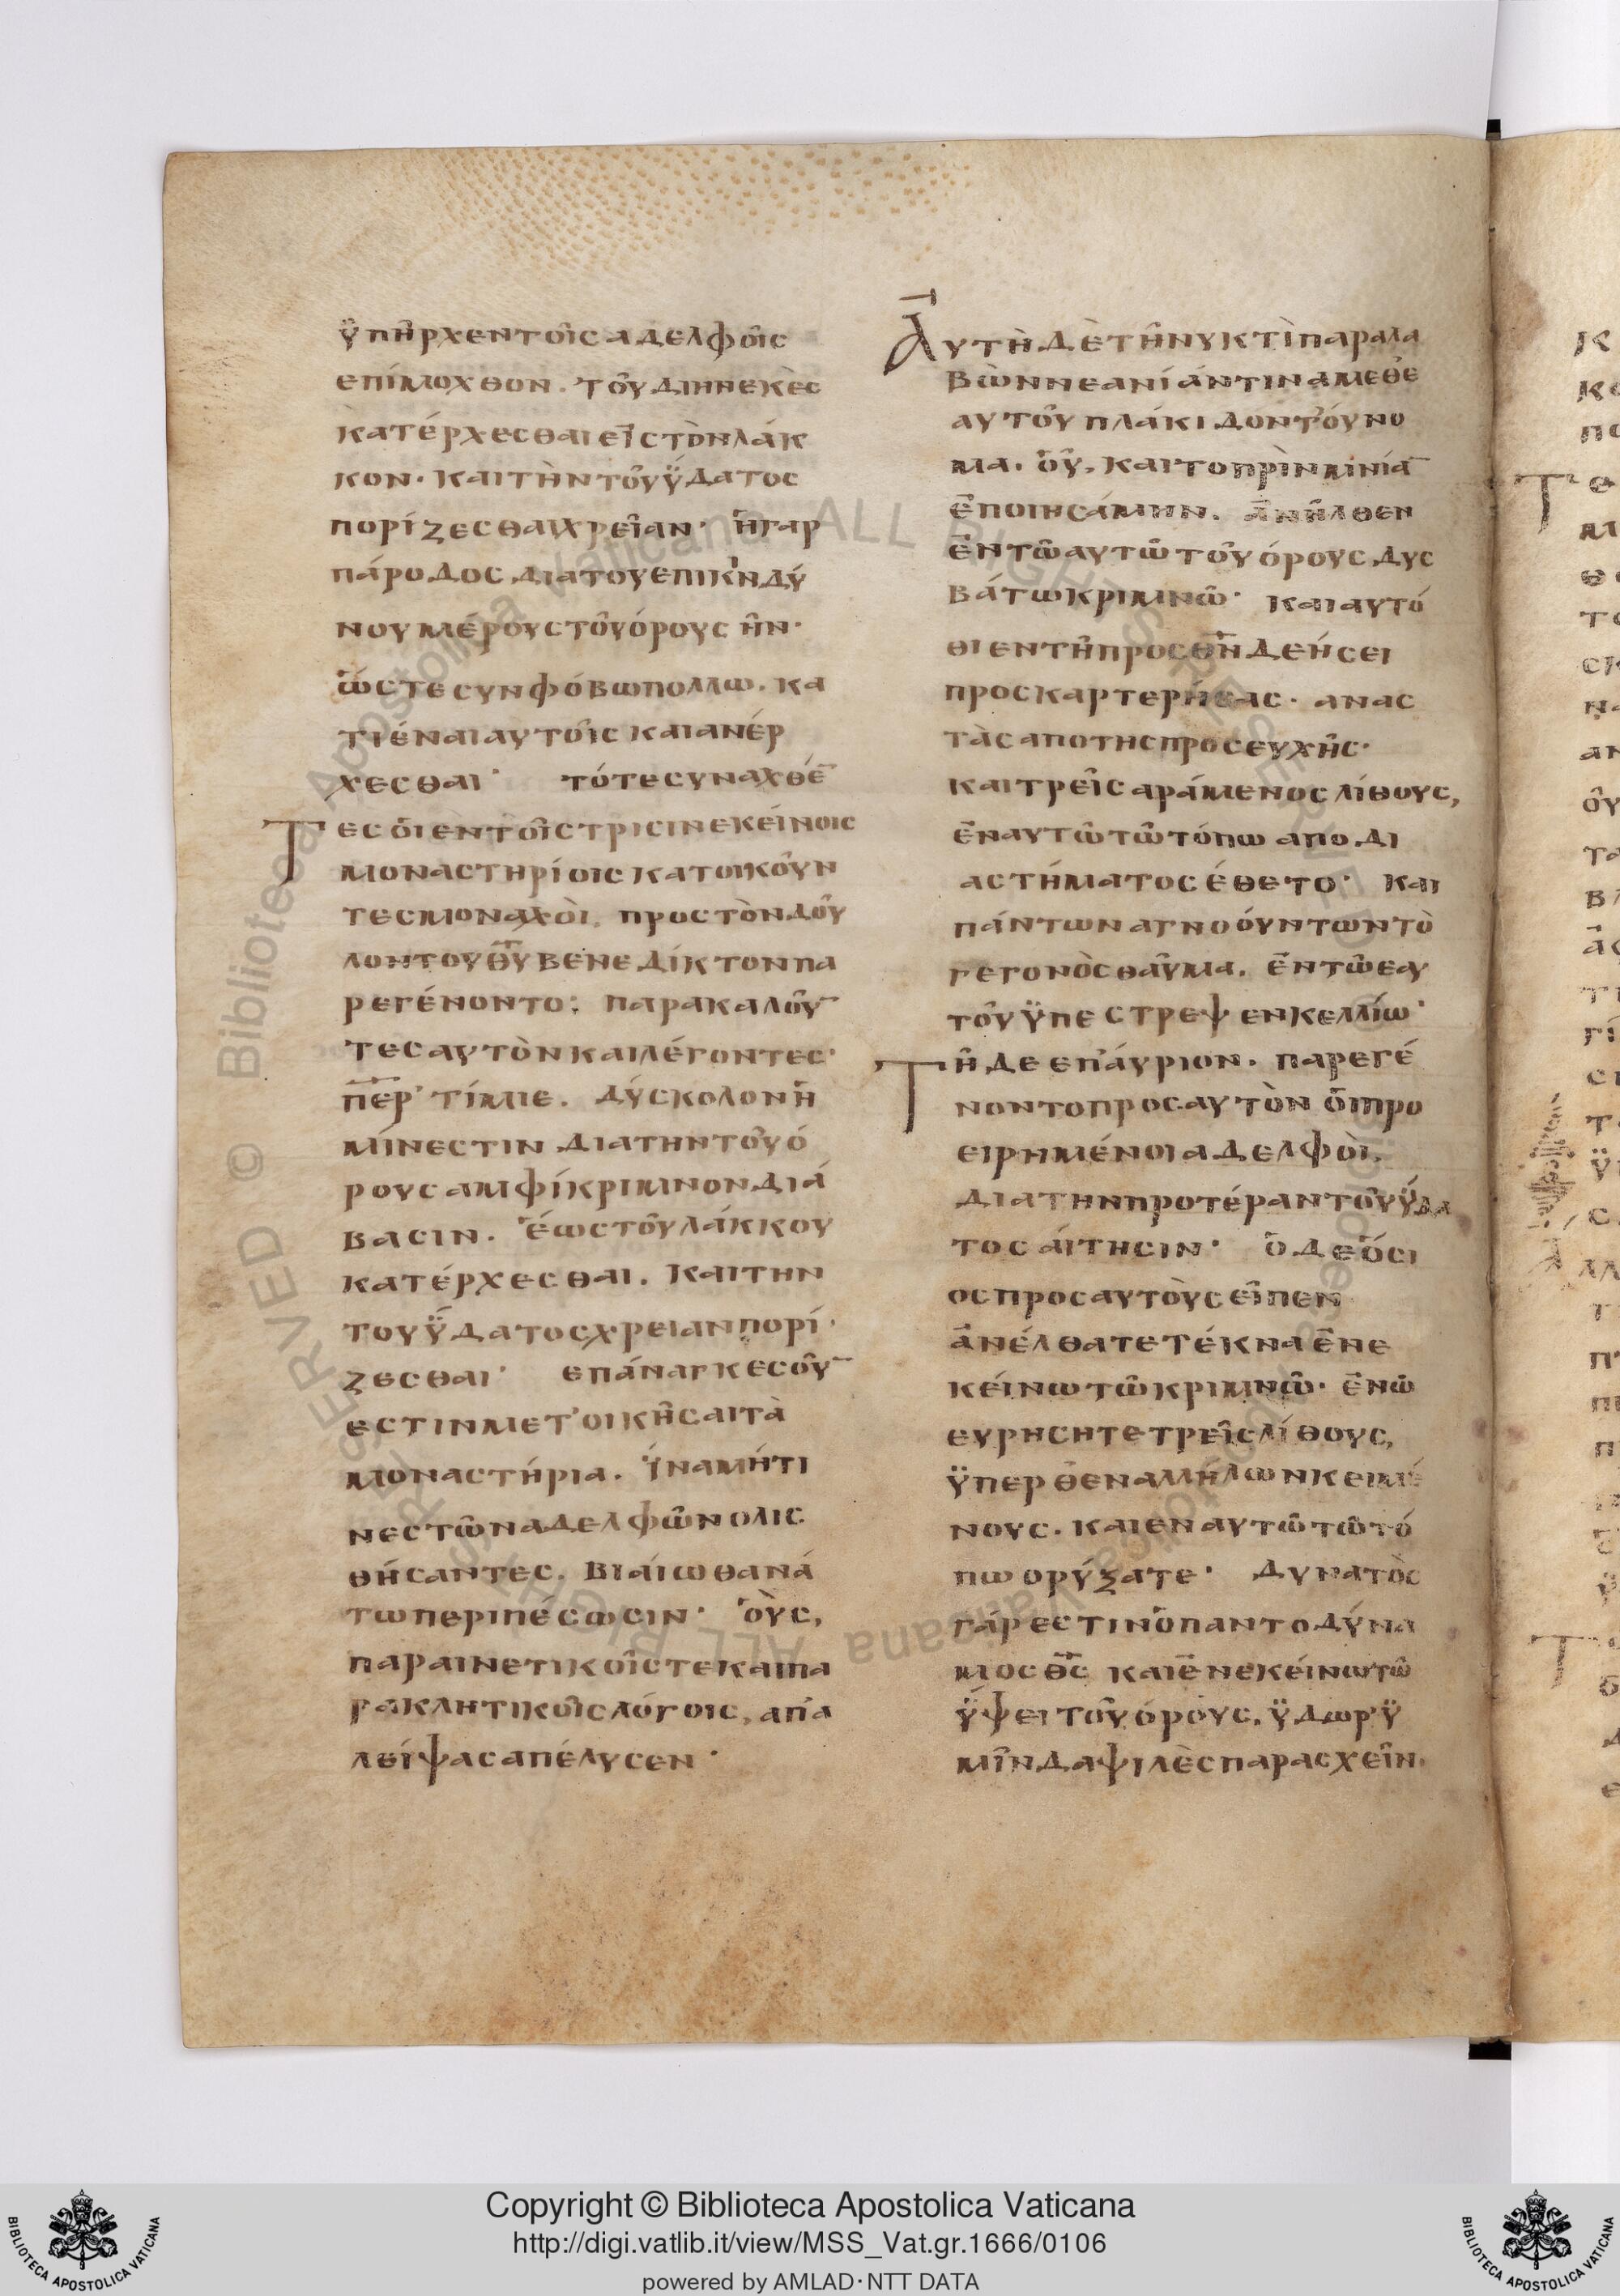 ϋπῆρχεντοῖσαδελφοῖσ
επίμοχθον. τοῦδιηνεκὲσ
κατέρχεσθαιεἰστὸνλάκ
κον· καιτὴντοῦϋδατοσ
πορίζεσθαιχρεῖαν· ἡγαρ
πάροδοσδιατουεπικινδύ
νουμέρουστοῦόρουσἦν·
ὥστεσυνφόβωπολλω. κα
τιέναιαυτοῖσκαιανέρ
χεσθαι· τότεσυναχθέ̅
Τεσὁιεντοῖστρισινεκείνοισ
μοναστηρίοισκατοικοῦν
τεσμοναχὸι. προστὸνδοῦ
λοντουθ̅υ̅βενεδίκτονπα
ρεγένοντο: παρακαλοῦ̅
τεσαυτὸνκαιλέγοντεσ·
π̅ε̅ρ̅ τίμιε. δύσκολονἡ
μίνεστινδιατηντοῦό
ρουσαμφίκριμνονδιά
βασιν. ἕωστοῦλάκκου
κατέρχεσθαι. καιτην
τουϋδατοσχρειανπορί
ζεσθαι· επάναγκεσοῦ̅
εστινμετοικῆσαιτὰ
μοναστήρια. ἵναμήτι
νεστῶναδελφῶνολισ
θήσαντεσ. βιάιωθανά
τωπεριπέσωσιν· ὁὺσ,
παραινετικοῖστεκαιπα
ρακλητικοῖσλόγοισ, απα
λείψασαπέλυσεν·
Αυτὴδὲτῆνυκτὶπαραλα
βὼννεανίάντιναμεθε
αυτοῦπλάκιδοντόυνο
μα. ὁῦ, καιτοπρὶνμνία̅
ἐποιησάμην. ἀνῆλθεν
ἐντῶαυτῶτοῦόρουσδυσ
βάτωκριμνῶ· καιαυτό
θιεντῆπροσθ̅ν̅δεήσει
προσκαρτερήσασ· ανασ
τὰσαποτησπροσευχῆσ·
καιτρεῖσαράμενοσλίθουσ,
ἐναυτῶτῶτόπωαποδι
αστήματοσέθετο· και
πάντωναγνοόυντωντὸ
γεγονὸσθαῦμα. ἐντῶεαυ
τοῦϋπεστρεψενκελλίω·
Τῆδεεπάυριον. παρεγέ
νοντοπροσαυτὸνὁιπρο
ειρημένοιαδελφὸι.
διατηνπροτέραντοῦϋδα
τοσάιτησιν· ὁδεὅσι
οσπροσαυτὸυσεῖπεν
ἀνέλθατετέκναἐνε
κείνωτῶκριμνῶ· ἐνῶ
ευρησητετρεῖσλίθουσ,
ϋπερθεναλλήλωνκειμέ
νουσ. καιεναυτῶτῶτό
πωορύξατε· δυνατὸσ
γάρεστινὁπαντοδύνα
μοσθ̅σ̅ καιἐνεκείνωτῶ
ϋψειτοῦόρουσ. ϋδωρϋ
μῖνδαψιλὲσπαρασχεῖν.
Copyright © Biblioteca Apostolica Vaticana
http://digi.vatlib.it/view/MSS_Vat.gr.1666/0106
powered by AMLAD·NTT DATA